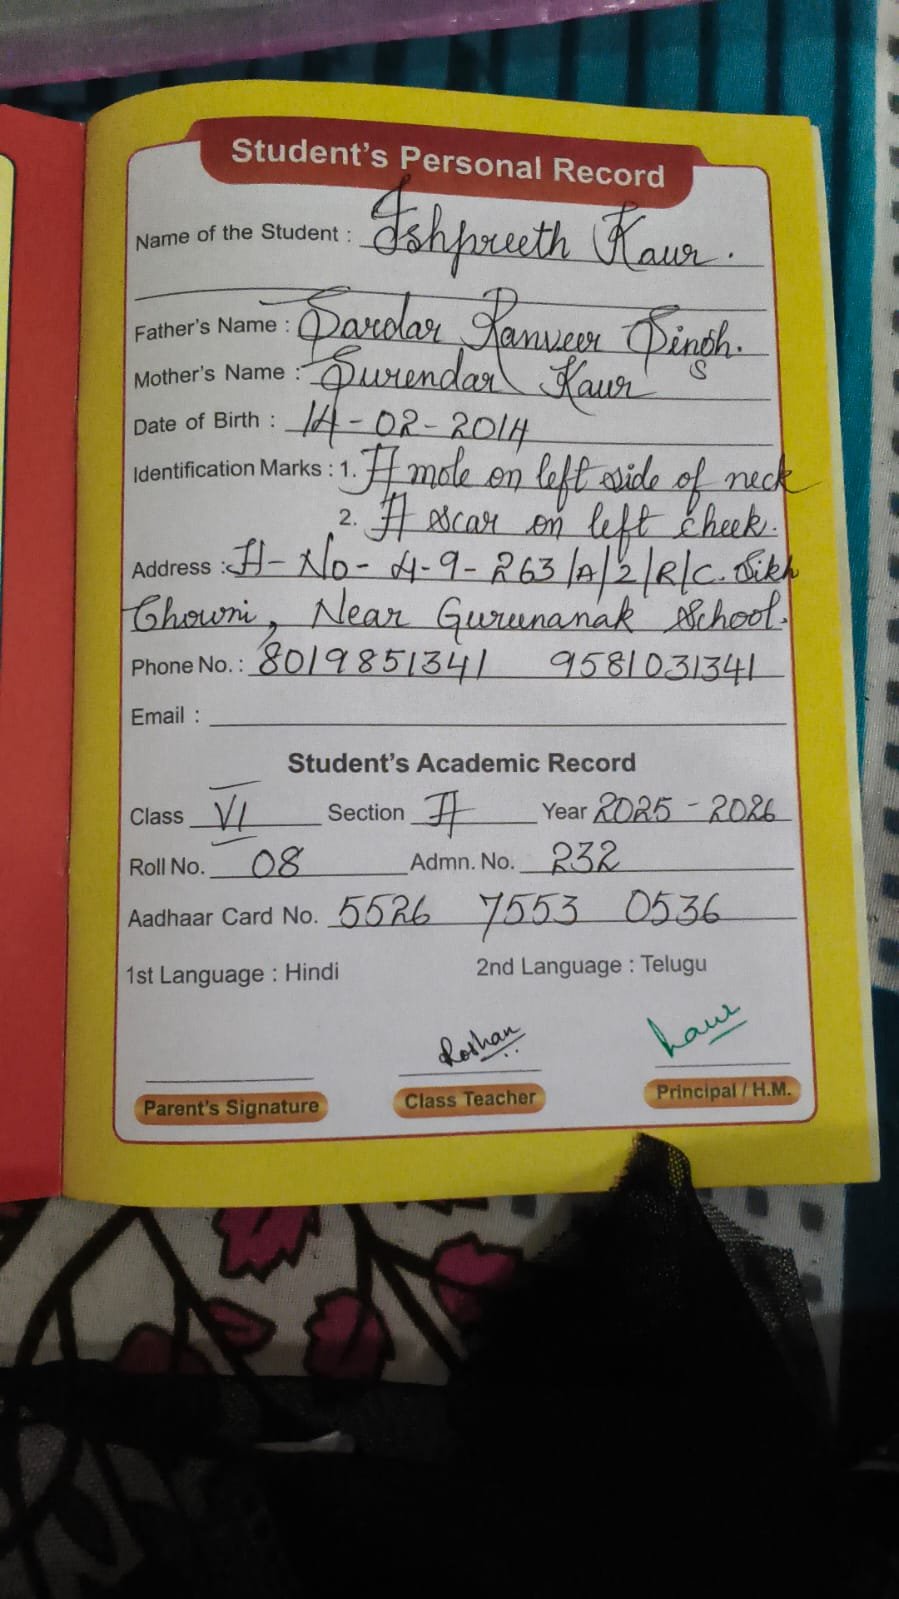 Student's Personal Record
Name of the Student : Ishpreeth Kaur.
Father's Name : Sardar Ranveer Singh.
Mother's Name : Surendar Kaur S
Date of Birth : 14-02-2014
Identification Marks : 1. A mole on left side of neck
2. A scar on left cheek.
Address : H-No-4-9-263/A/2/R/C. Sikh
Chowni, Near Gurunanak School.
Phone No. : 8019851341 9581031341
Email :
Student's Academic Record
Class VI Section A Year 2025-2026
Roll No. 08 Admn. No. 232
Aadhaar Card No. 5526 7553 0536
1st Language : Hindi 2nd Language : Telugu
Roshan Kaur
Parent's Signature Class Teacher Principal / H.M.